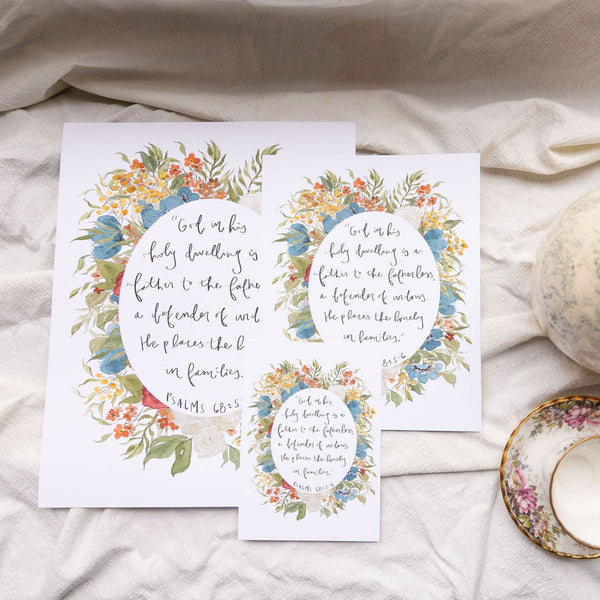 "God in his
holy dwelling is
father to the father
a defender of wid
He places the l
in families.
PSALMS 68:5-
"God in his
holy dwelling is a
father to the fatherless,
a defender of widows.
He places the lonely
in families."
68:5-6
"God in his
holy dwelling is a
father to the fatherless,
a defender of widows.
He places the lonely
in families."
PSALMS 68:5-6